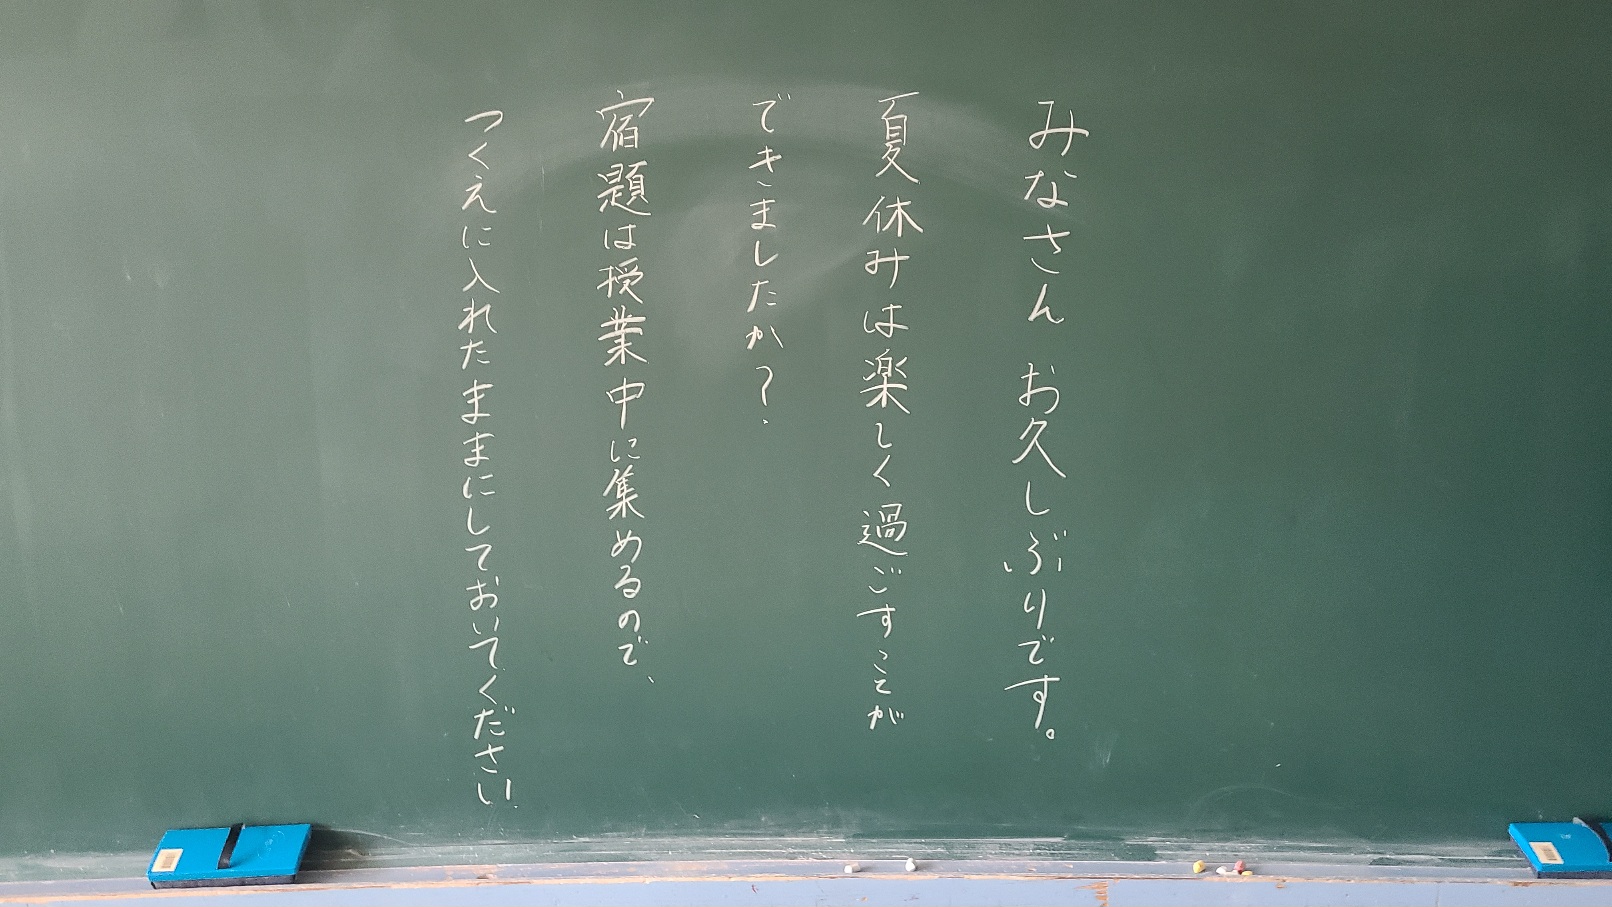 みなさん お久しぶりです。
夏休みは楽しく過ごすことが
できましたか？
宿題は授業中に集めるので、
つくえに入れたままにしておいてください